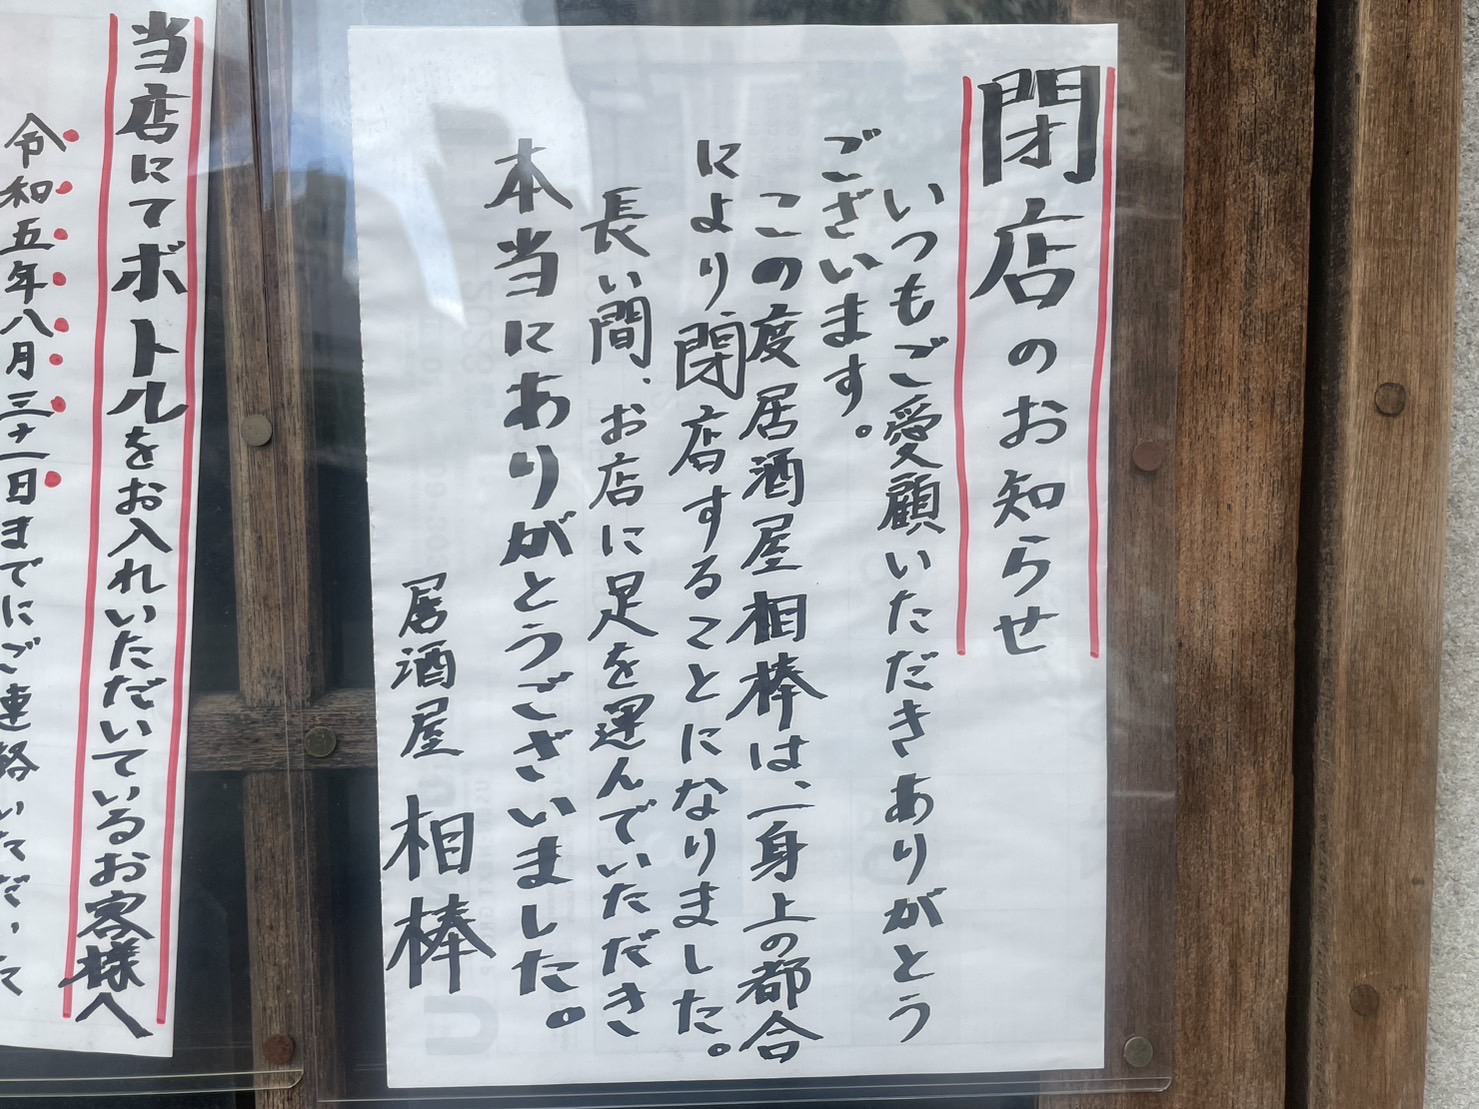 閉店のお知らせ
いつもご愛顧いただきありがとう
ございます。
この度居酒屋相棒は、一身上の都合
により閉店することになりました。
長い間、お店に足を運んでいただき
本当にありがとうございました。
居酒屋 相棒
当店にてボトルをお入れいただいているお客様へ
令和五年八月三十一日までにご連絡いただいて